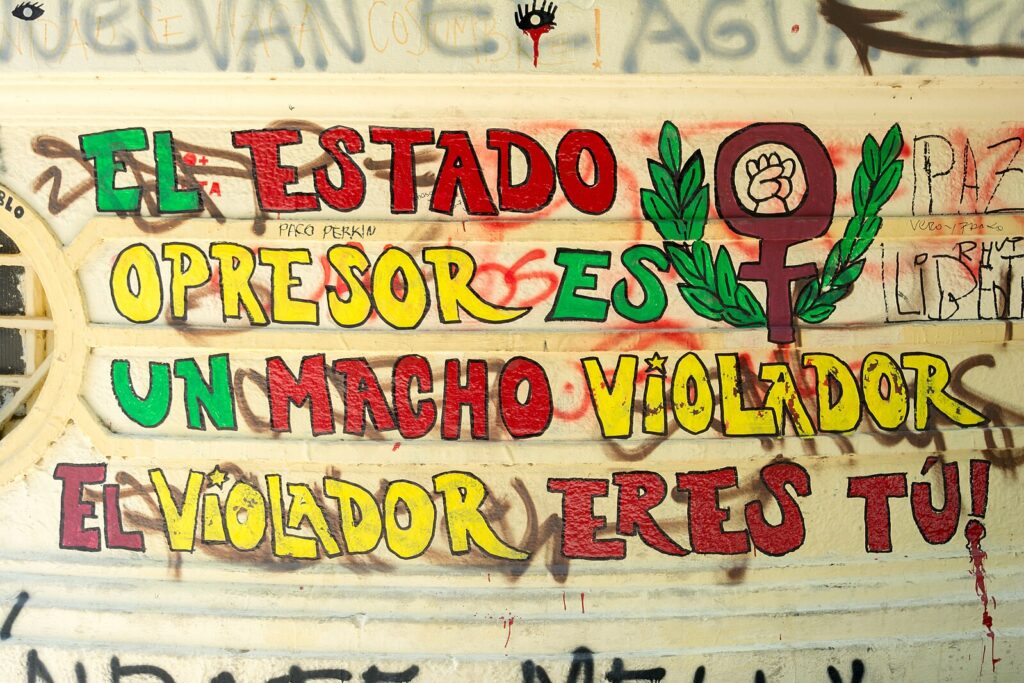 VUELVAN E AGUA
COSTUMBRE!
EL ESTADO
PAZ
PACO PERKIN
OPRESOR ES
UN MACHO VIOLADOR
EL VIOLADOR ERES TÚ!